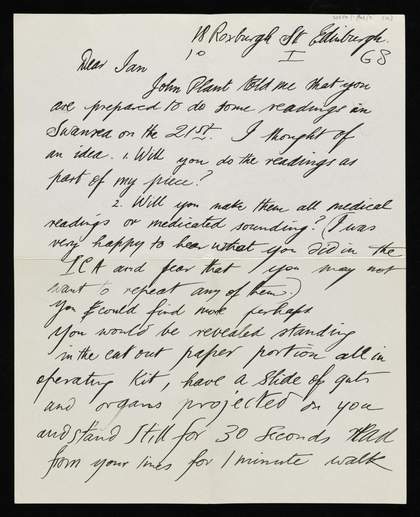 18 Roxburgh St Edinburgh.
10 I 68
Dear Ian
John Plant told me that you
are prepared to do some readings in
Swansea on the 21st. I thought of
an idea. 1. Will you do the readings as
part of my piece?
2. Will you make them all medical
readings or medicated sounding? (I was
very happy to hear what you did in the
ICA and fear that you may not
want to repeat any of them.)
You could find more perhaps
You would be revealed standing
in the cut out paper portion all in
operating kit, have a slide of guts
and organs projected on you
and stand still for 30 seconds read
from your lines for 1 minute walk